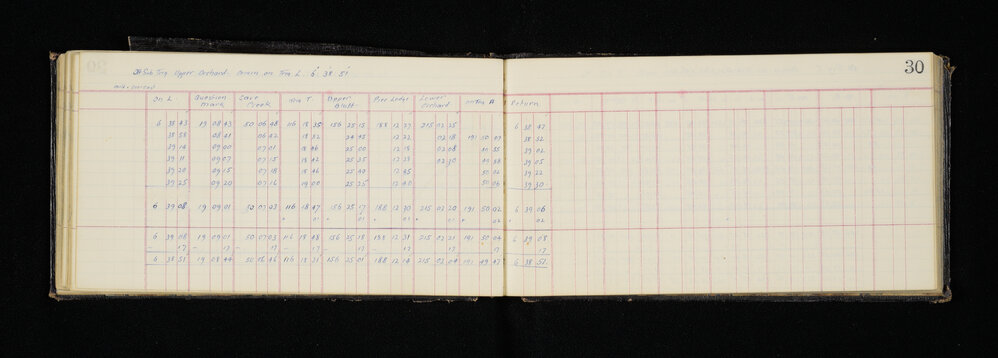 30
Upper Orchard Drawn on Trig L 6 38 51
On L Question Mark Cave Creek Trig T Upper Bluff Pier Ledge Lower Orchard Trig A Return
6 38 43 19 08 43 50 06 48 116 18 35 156 25 15 188 12 27 215 02 25 6 38 47
38 58 08 41 06 42 18 52 24 45 12 22 02 18 191 50 07 38 52
39 14 09 00 07 01 18 46 25 00 12 18 02 08 39 02
39 11 09 07 07 15 18 42 25 25 12 28 02 30 39 05
39 20 09 15 07 18 18 46 25 20 12 45 50 02 39 22
39 25 09 20 07 16 19 00 25 25 12 40 50 06 39 30
6 39 08 19 09 01 50 07 03 116 18 47 156 25 17 188 12 30 215 02 20 191 50 02 6 39 06
01 01 01 01 02 02
6 39 08 19 09 01 50 07 03 116 18 48 156 25 18 188 12 31 215 02 21 191 50 04 6 39 08
17 17 17 17 17 17 17 17 17
6 38 51 19 08 44 50 06 46 116 18 31 156 25 01 188 12 14 215 02 04 191 49 47 6 38 51